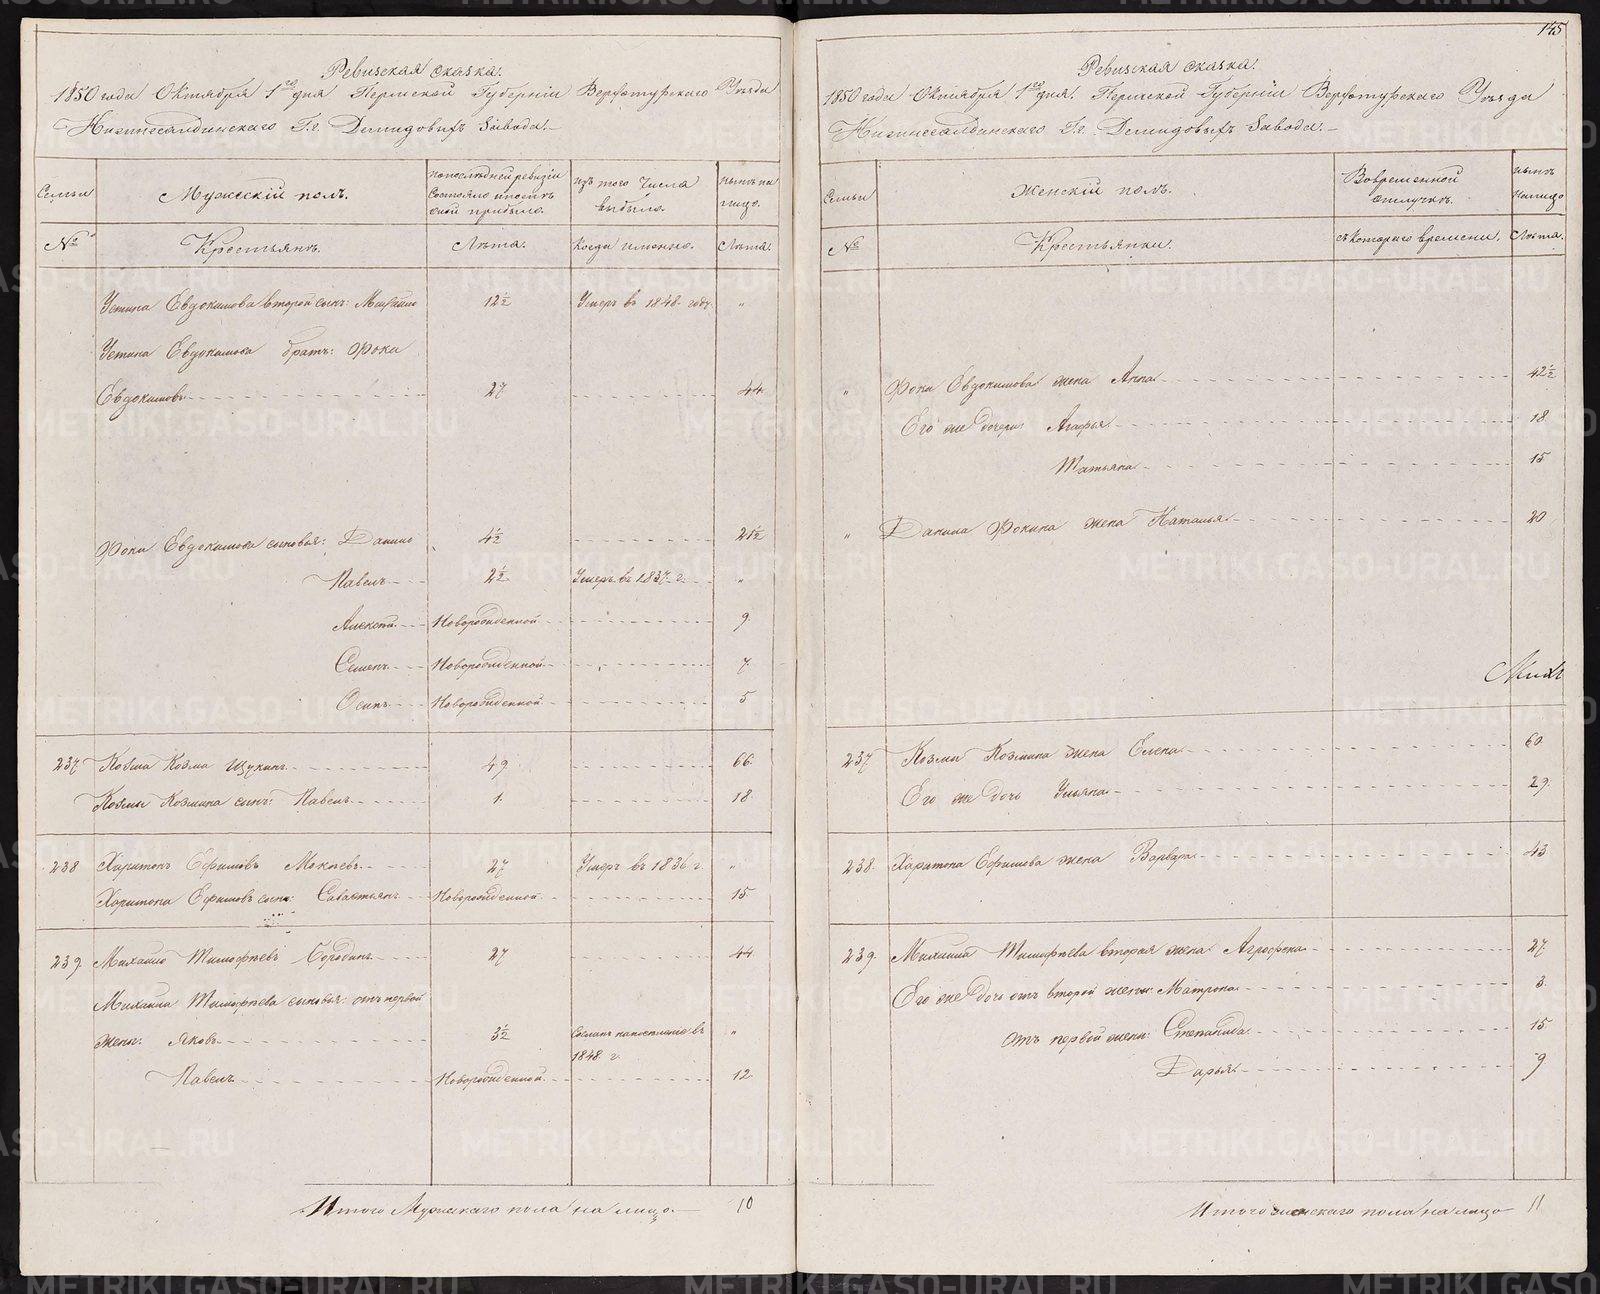 Ревизская сказка.
1850 года Октября 1го дня Пермской Губерніи Верхотурскаго Уезда
Нижнесалдинскаго Г.г. Демидовыхъ Завода.
Семьи
Мужескій полъ.
по последней ревизіи состояло и после оной прибыло.
изъ того числа выбыло.
ныне на лицо.
№
Крестьянъ.
Лѣта.
Когда именно.
Лѣта.
Устина Евдокимова второй сынъ: Михайло 12½ Умеръ въ 1848 году "
Устина Евдокимова братъ: Фока
Евдокимовъ 27 44
Фоки Евдокимова сыновья: Данило 4½ 21½
Павелъ 2½ Умеръ въ 1837 г. "
Алексѣй Новорожденной 9
Семенъ Новорожденной 7
Осипъ Новорожденной 5
237 Козма Козминъ Щукинъ 49 66
Козмы Козмина сынъ: Павелъ 1 18
238 Харитонъ Ефимовъ Мокѣевъ 27 Умеръ въ 1836 г. "
Харитона Ефимова сынъ: Савастьянъ Новорожденной 15
239. Михайло Тимофѣевъ Бородинъ 27 44
Михаила Тимофѣева сыновья: отъ первой
жены: Яковъ 3½ Сосланъ на поселение въ 1848 г. "
Павелъ Новорожденной 12
Итого Мужескаго пола на лицо 10
145
Ревизская сказка.
1850 года Октября 1го дня. Пермской Губерніи Верхотурскаго Уезда
Нижнесалдинскаго Г.г. Демидовыхъ Завода.
Семьи
Женскій полъ.
Во временной отлучкѣ.
ныне на лицо
№
Крестьянки.
съ котораго времени.
Лѣта.
" Фоки Евдокимова жена Анна 42½
Его же дочери Агафья 18
Татьяна 15
" Данила Фокина жена Наталья 20
237 Козмы Козмина жена Елена 60
Его же дочь Ульяна 29
238. Харитона Ефимова жена Варвара 43
239. Михаила Тимофѣева вторая жена Агрофена 27
Его же дочь отъ второй жены: Матрона 3
отъ первой жены: Степанида 15
Дарья 9
Итого женскаго пола на лицо 11
METRIKI.GASO-URAL.RU